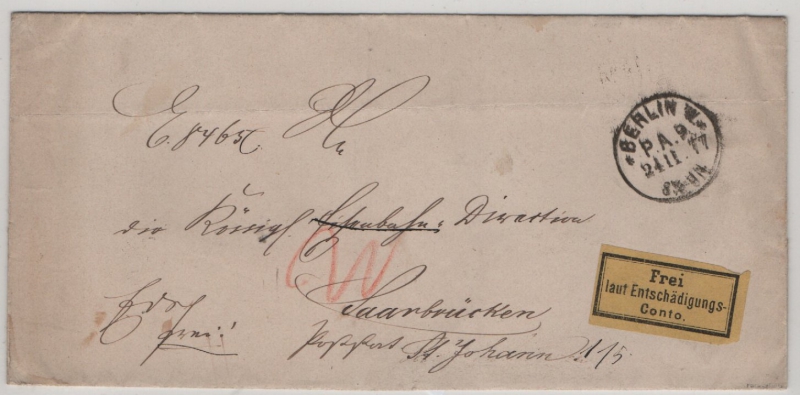 E. 8465
An
die Königl. Eisenbahn-Direction
Saarbrücken
frei!
St. Johann
*BERLIN W.*
P.A.9.
24 11. 77
Frei
laut Entschädigungs-
Conto.